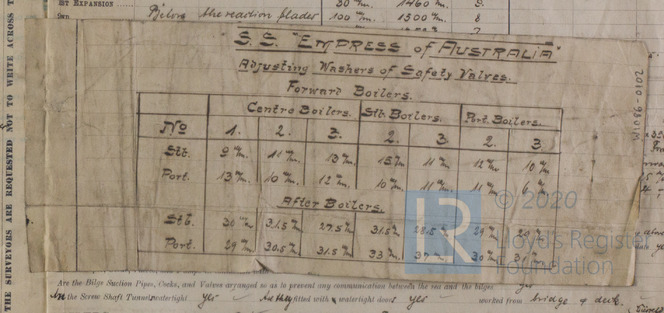 1ST EXPANSION
Below the reaction blades 100 m/m. 1500 m/m. 8
S.S. "EMPRESS of AUSTRALIA"
Adjusting Washers of Safety Valves.
Forward Boilers.
Centre Boilers. Stb. Boilers. Port. Boilers.
No 1. 2. 3. 2. 3. 2. 3.
Stb. 9 m/m. 11 m/m. 13 m/m. 15 m/m. 11 m/m. 12 m/m. 10 m/m.
Port. 13 m/m. 10 m/m. 12 m/m. 10 m/m. 11 m/m. 11 m/m. 6 m/m.
After Boilers.
Stb. 30 m/m 31.5 m/m 27.5 m/m 31.5 m/m 28.5 m/m 29 m/m 29 m/m
Port. 29 m/m. 30.5 m/m 31.5 m/m 33 m/m 30 m/m 31 m/m
W1086-0102
THE SURVEYORS ARE REQUESTED NOT TO WRITE ACROSS T
LR
© 2020
Lloyd's Register
Foundation
Are the Bilge Suction Pipes, Cocks, and Valves arranged so as to prevent any communication between the sea and the bilges yes
Is the Screw Shaft Tunnel watertight yes Is it fitted with a watertight door yes worked from bridge & deck.